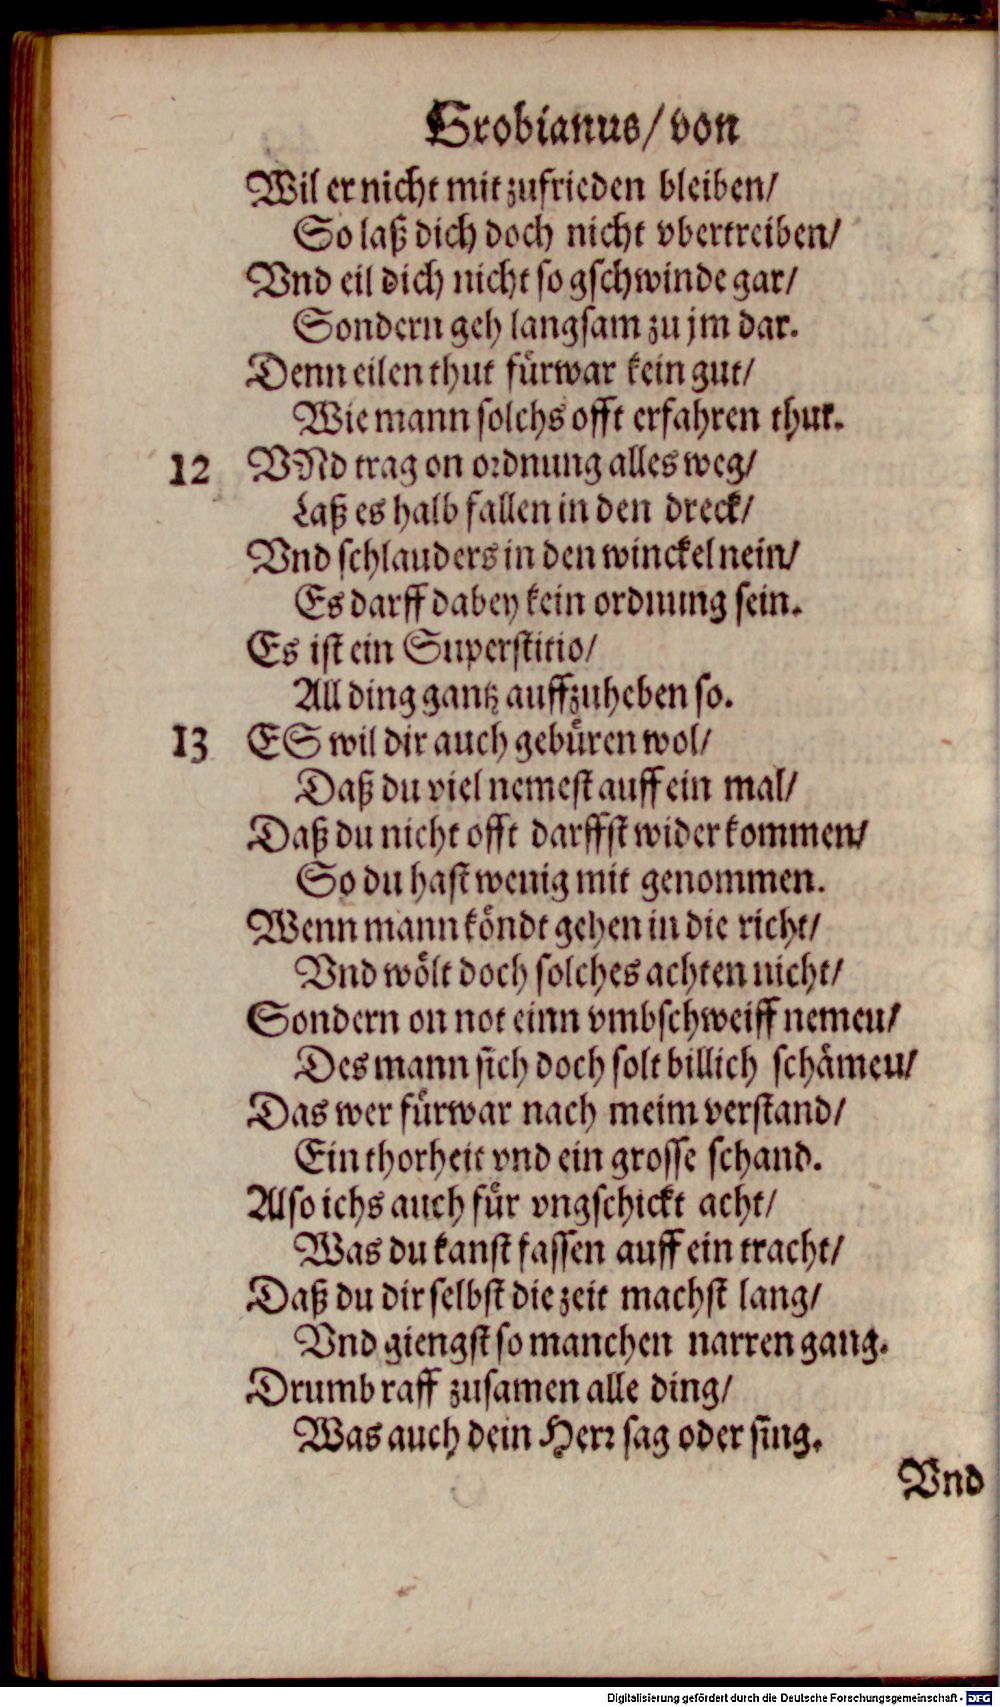 Grobianus/ von
Wil er nicht mit zufrieden bleiben/
So laß dich doch nicht vbertreiben/
Vnd eil dich nicht so gschwinde gar/
Sondern geh langsam zu jm dar.
Denn eilen thut fuͤrwar kein gut/
Wie mann solchs offt erfahren thut.
12 VNd trag on ordnung alles weg/
Laß es halb fallen in den dreck/
Vnd schlauders in den winckel nein/
Es darff dabey kein ordnung sein.
Es ist ein Superstitio/
All ding gantz auffzuheben so.
13 ES wil dir auch gebuͤren wol/
Daß du viel nemest auff ein mal/
Daß du nicht offt darffst wider kommen/
So du hast wenig mit genommen.
Wenn mann koͤndt gehen in die richt/
Vnd woͤlt doch solches achten nicht/
Sondern on not einn vmbschweiff nemeu/
Des mann sich doch solt billich schaͤmeu/
Das wer fuͤrwar nach meim verstand/
Ein thorheit vnd ein grosse schand.
Also ichs auch fuͤr vngschickt acht/
Was du kanst fassen auff ein tracht/
Daß du dir selbst die zeit machst lang/
Vnd giengst so manchen narren gang.
Drumb raff zusamen alle ding/
Was auch dein Herr sag oder sing.
Vnd
Digitalisierung gefördert durch die Deutsche Forschungsgemeinschaft - DFG